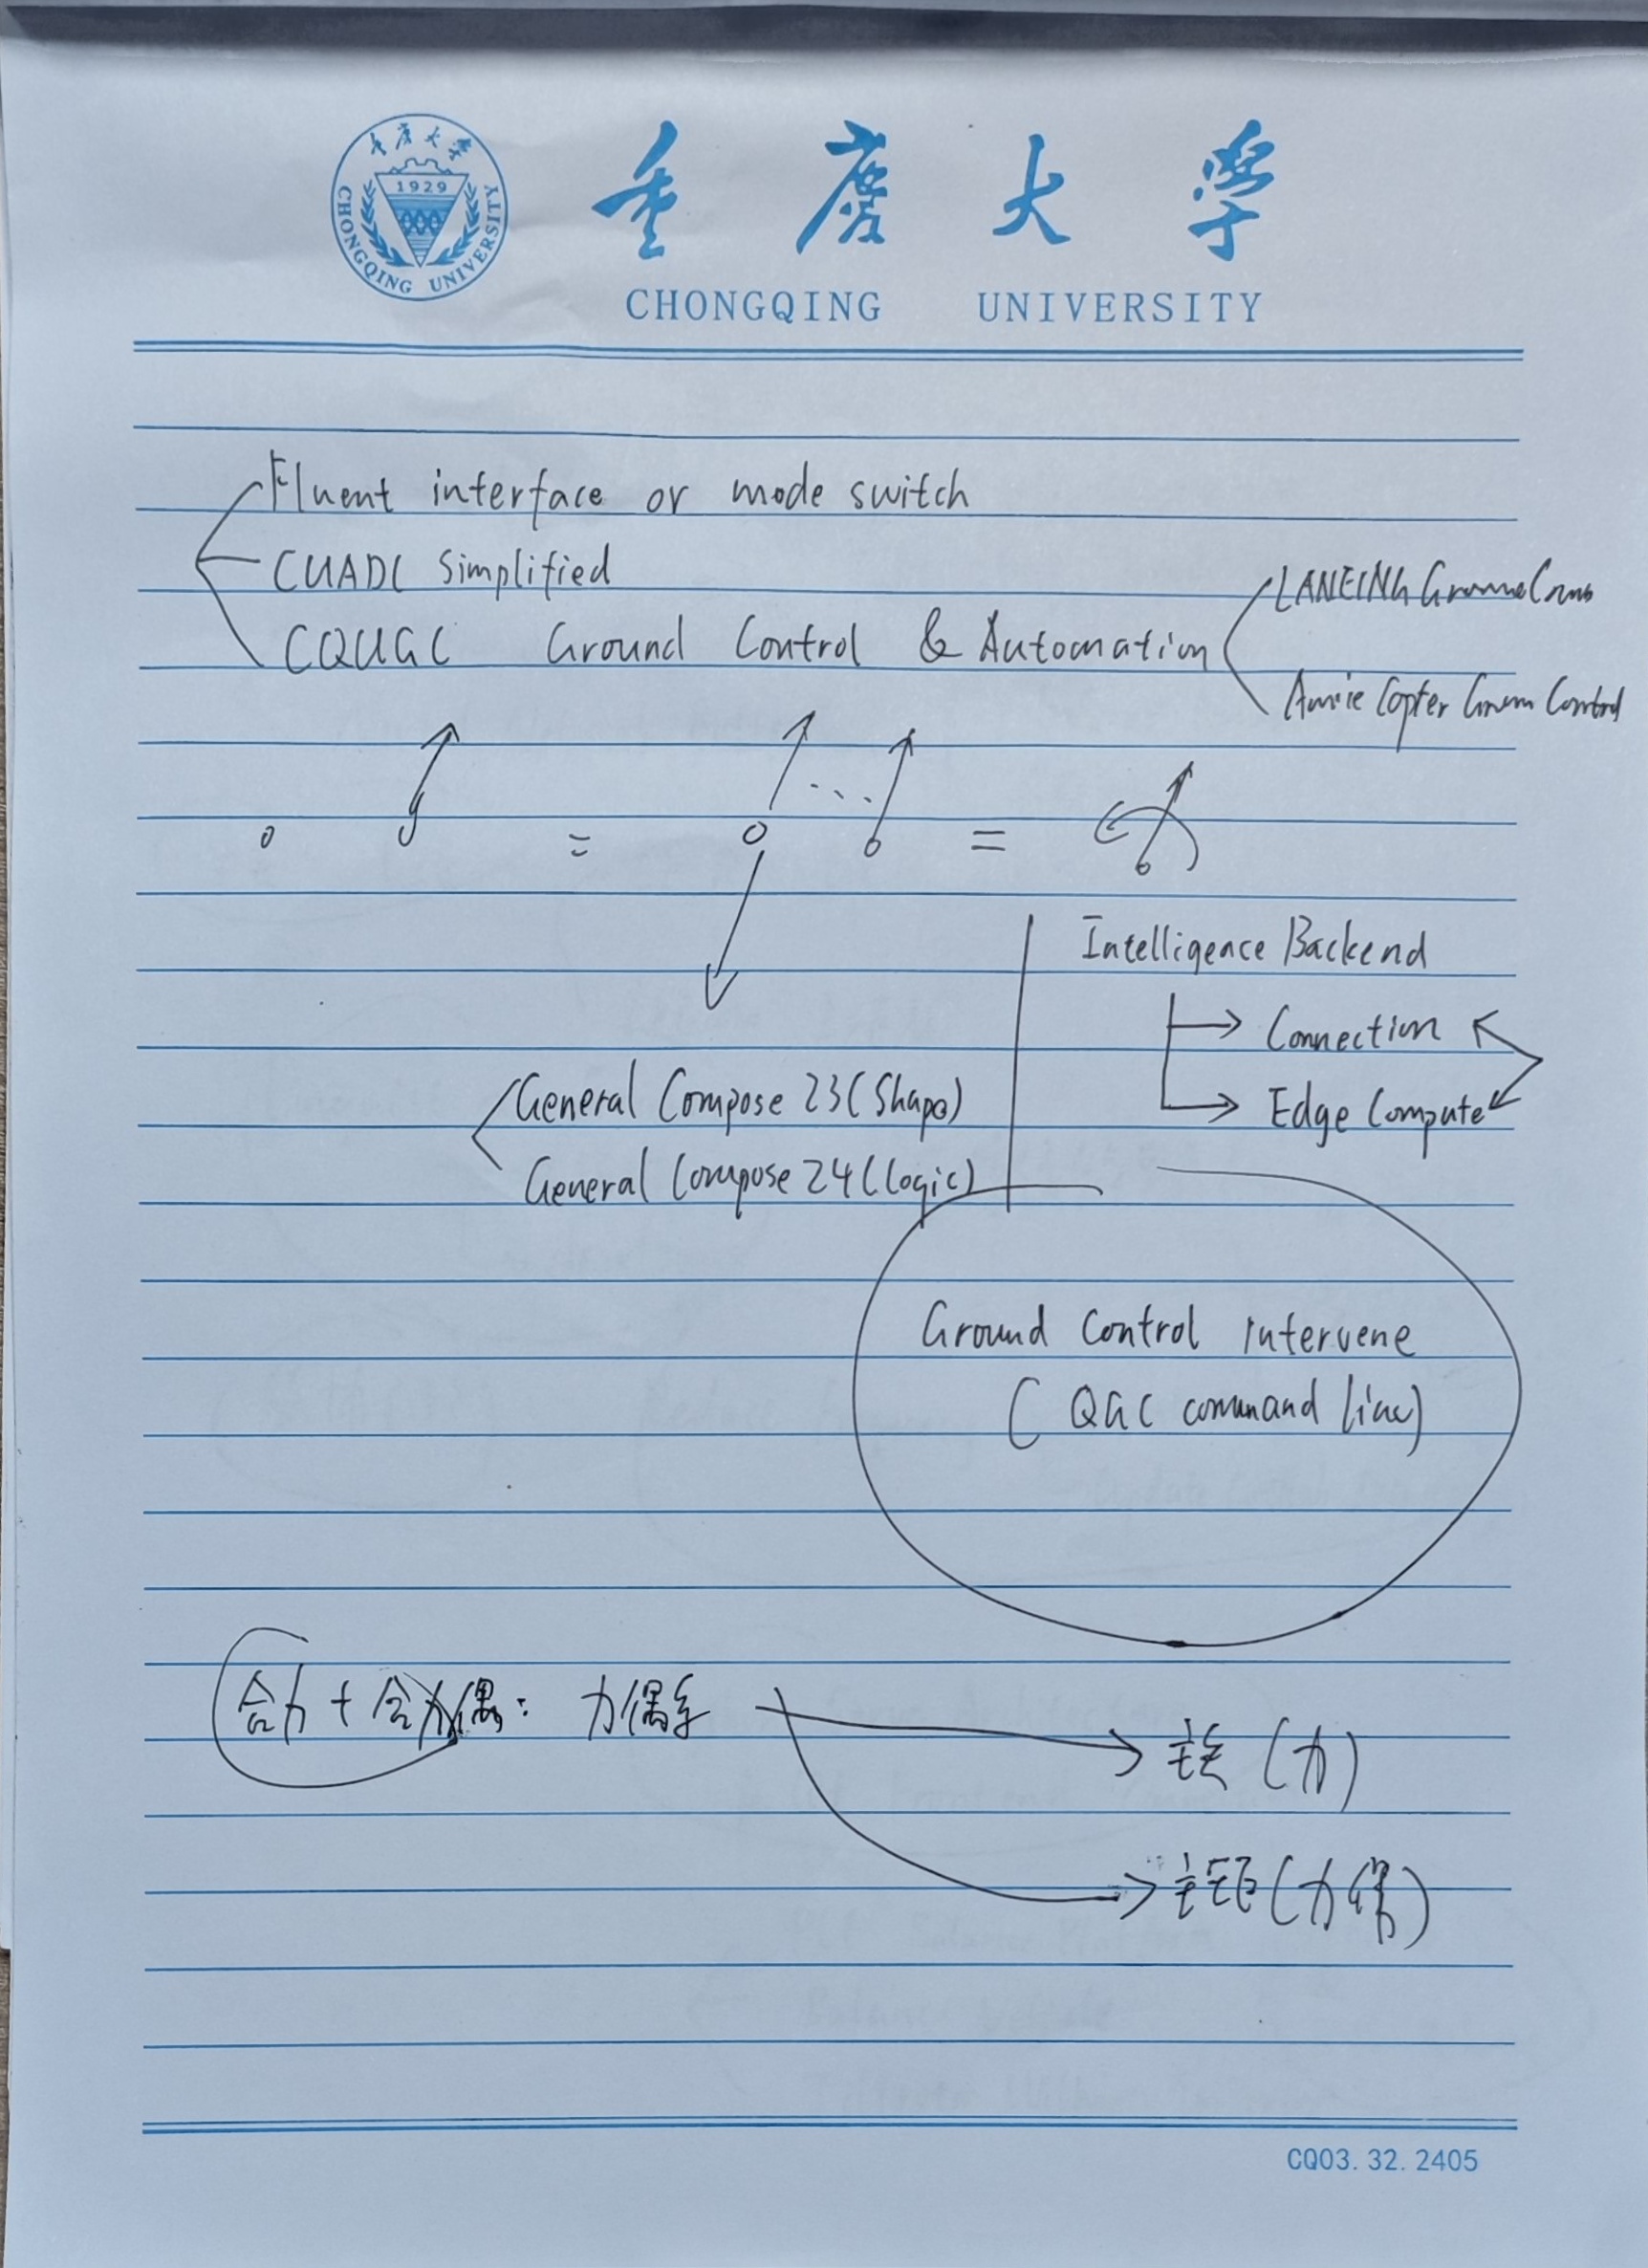 重庆大学
1929
CHONGQING UNIVERSITY
重庆大学
CHONGQING UNIVERSITY
Fluent interface or mode switch
CUADC Simplified
CQUGC Ground Control & Automation
Copter Control
= =
Intelligence Backend
Connection
Edge Compute
General Compose 23 (Shape)
General Compose 24 (Logic)
Ground Control Intervene
(QGC command line)
合力 + 合力偶: 力偶系
(力)
主矩 (力偶)
CQ03.32.2405